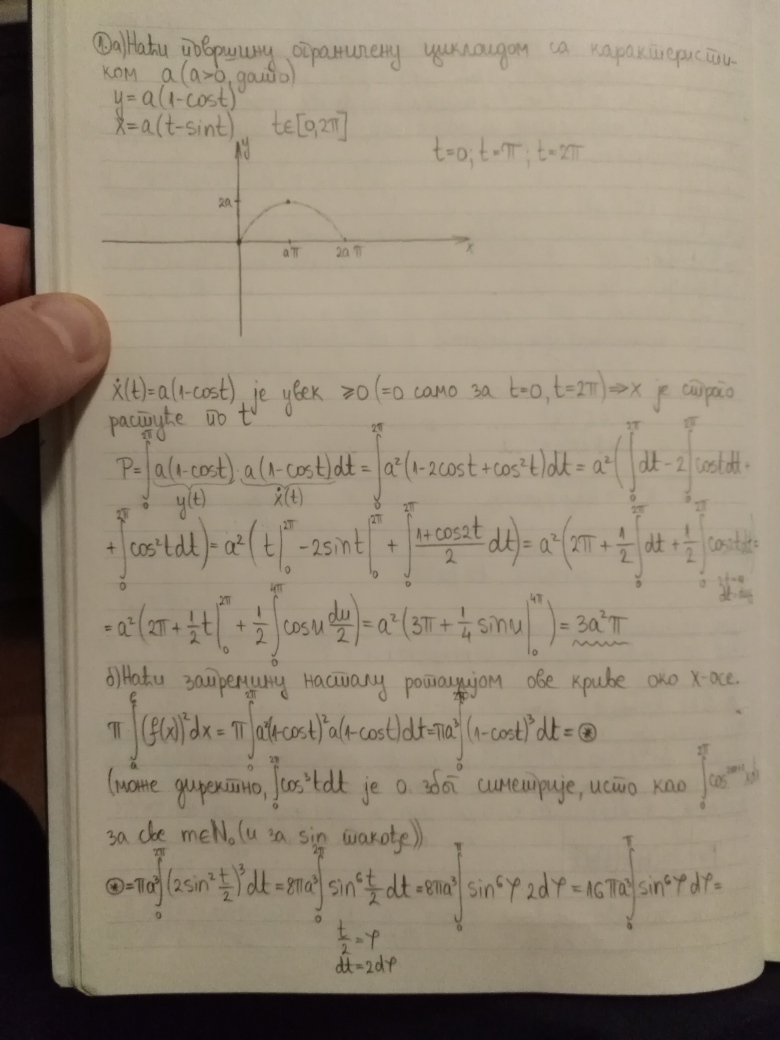 1. а) Наћи површину ограничену циклоидом са карактеристи-
ком a (a>0, дато)
y=a(1-cost)
x=a(t-sint) t∈[0,2π]
t=0; t=π; t=2π
y
2a
aπ 2aπ x
ẋ(t)=a(1-cost) је увек ≥0 (=0 само за t=0, t=2π) ⇒ x је строго
растуће по t
P=∫₀^{2π} a(1-cost)·a(1-cost)dt = ∫₀^{2π} a²(1-2cost+cos²t)dt = a²(∫₀^{2π} dt - 2∫₀^{2π} cost dt +
y(t) ẋ(t)
+ ∫₀^{2π} cos²t dt) = a²(t|₀^{2π} - 2sint|₀^{2π} + ∫₀^{2π} (1+cos2t)/2 dt) = a²(2π + 1/2 ∫₀^{2π} dt + 1/2 ∫₀^{2π}
= a²(2π + 1/2 t|₀^{2π} + 1/2 ∫₀^{4π} cosu du/2) = a²(3π + 1/4 sinu|₀^{4π}) = 3a²π
б) Наћи запремину насталу ротацијом ове криве око x-осе.
π∫(f(x))²dx = π∫₀^{2π} a²(1-cost)²a(1-cost)dt = πa³∫₀^{2π} (1-cost)³dt = ⊛
(може директно, ∫₀^{2π} cos³t dt је 0 због симетрије, исто као ∫₀^{2π}
за све m∈N₀ (и за sin такође))
⊛ = πa³∫₀^{2π} (2sin² t/2)³dt = 8πa³∫₀^{2π} sin⁶ t/2 dt = 8πa³∫₀^{π} sin⁶φ 2dφ = 16πa³∫₀^{π} sin⁶φ dφ =
t/2 = φ
dt = 2dφ